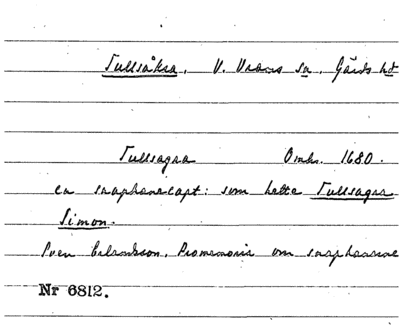 Tullsåkra, V. Vrams sn, Gärds hd
Tullsagra Omkr. 1680.
en snaphanecapt: som hette Tullsagra
Simon.
Sven Erlandsson, Promemoria om snaphanar
Nr 6812.